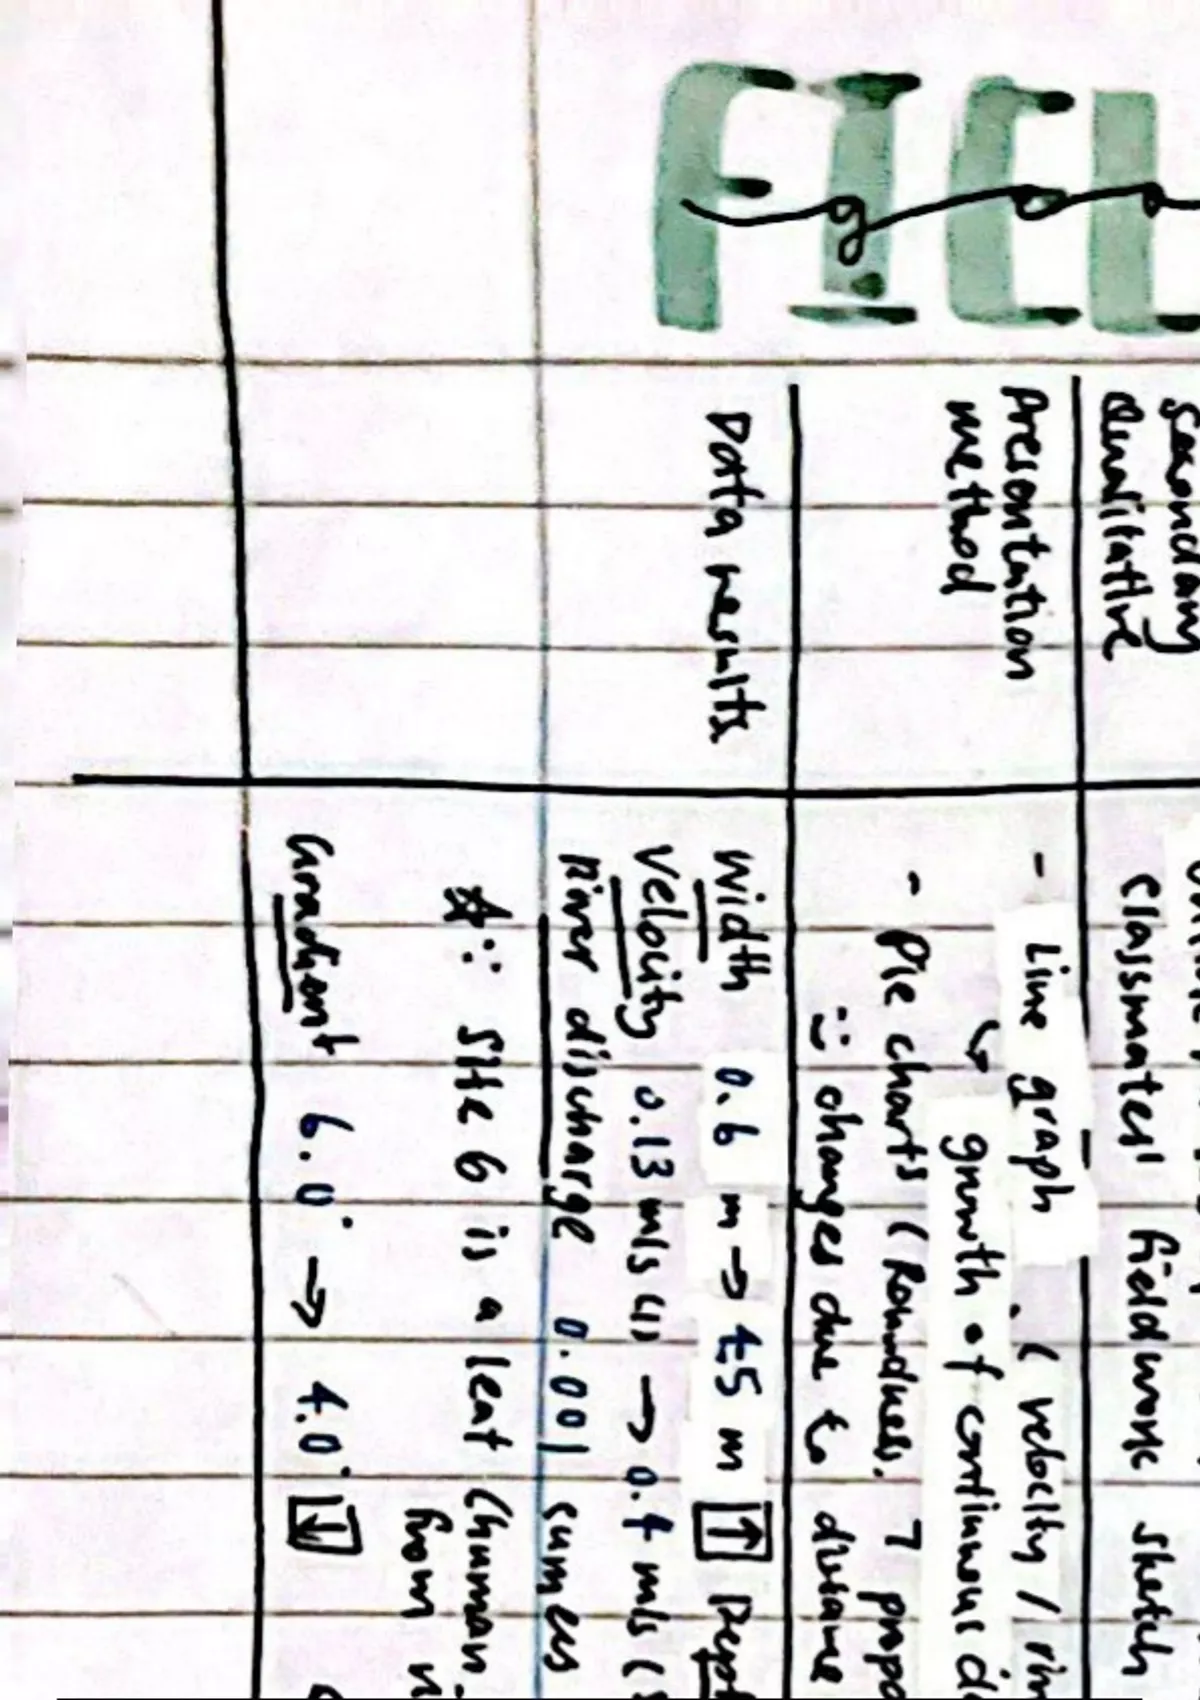 FIEL
Secondary
Qualitative
classmates' fieldwork sketch
Presentation
method
- Line graph . ( velocity /
↳ growth of continuous
- Pie charts ( Roundness.
∵ changes due to distance
Data results
Width 0.6 m → m ↑
Velocity 0.13 m/s → m/s
River discharge 0.001 cumecs
☆∵ Site 6 is a leat (human
from
Gradient 6.0° → 4.0° ↓